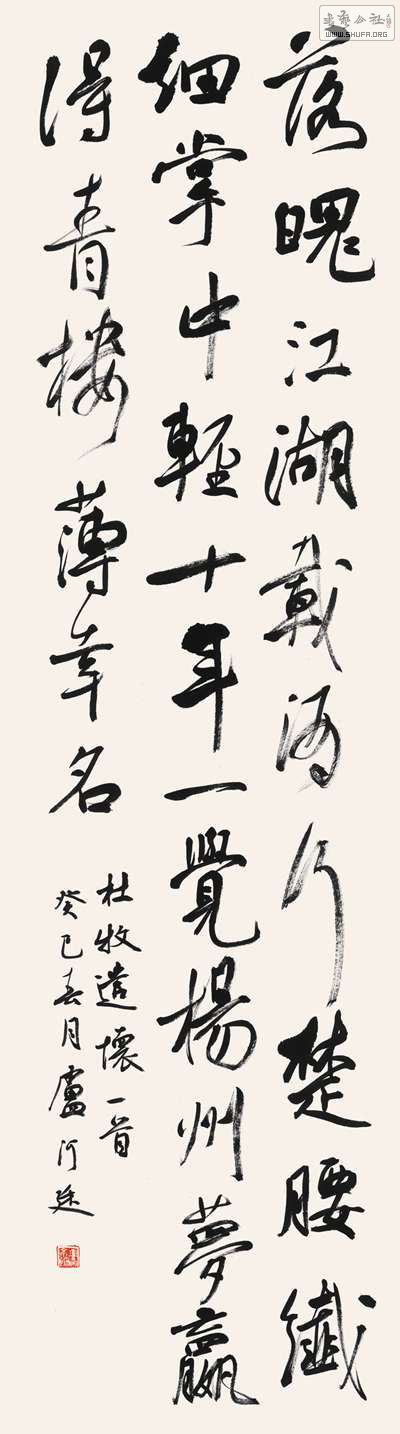 落魄江湖載酒行楚腰纖
細掌中輕十年一覺楊州夢贏
得青樓薄幸名
杜牧遣懷一首
癸巳春月盧
书艺公社
WWW.SHUFA.ORG